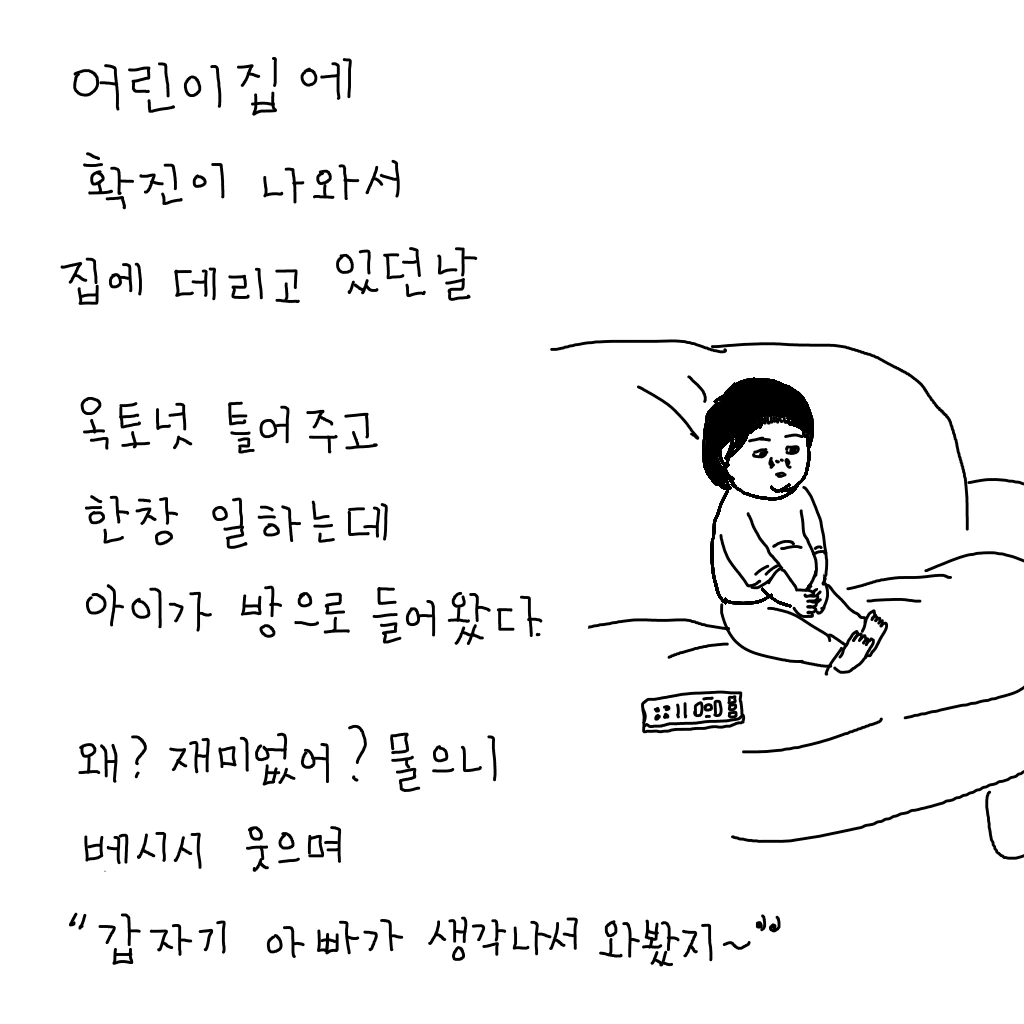 어린이집에
확진이 나와서
집에 데리고 있던날
옥토넛 틀어주고
한창 일하는데
아이가 방으로 들어왔다.
왜? 재미없어? 물으니
베시시 웃으며
“갑자기 아빠가 생각나서 와봤지~”